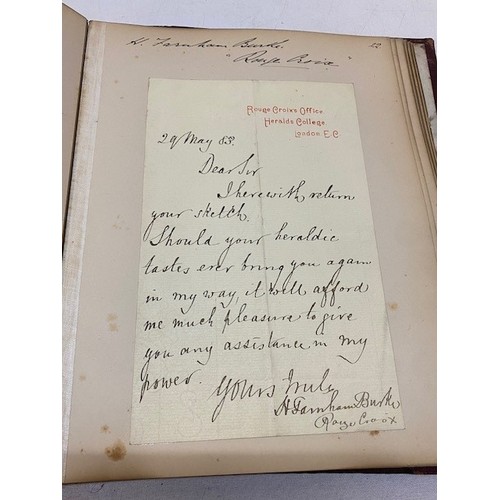 H. Farnham Burke.
"Rouge Croix"
Rouge Croix's Office
Heralds College
London. E.C.
29 May 83.
Dear Sir
I herewith return
your sketch.
Should your heraldic
tastes ever bring you again
in my way, it will afford
me much pleasure to give
you any assistance in my
power.
Yours truly
H Farnham Burke
Rouge Croix